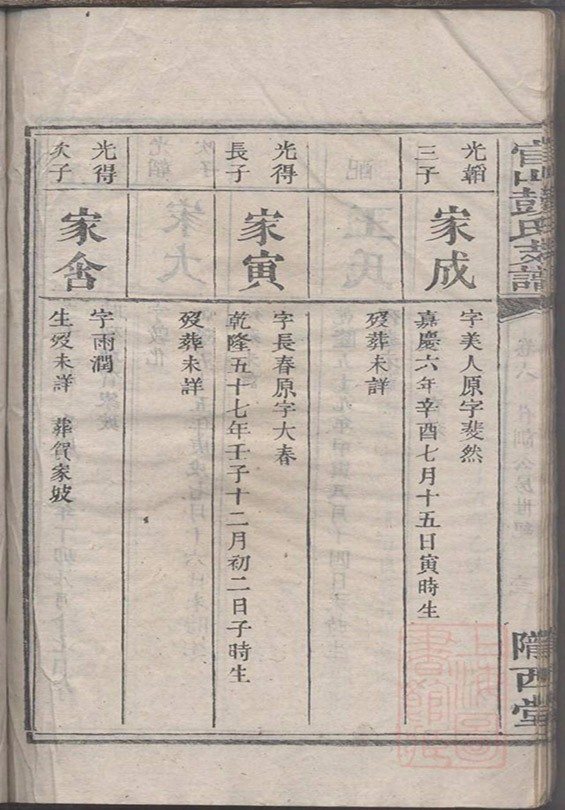 彭氏支譜
隴西堂
光韜
三子
家成
字美人原字斐然
嘉慶六年辛酉七月十五日寅時生
歿葬未詳
光得
長子
家寅
字長春原字大春
乾隆五十七年壬子十二月初二日子時生
歿葬未詳
光得
次子
家舍
字雨潤
生歿未詳 葬賀家坡